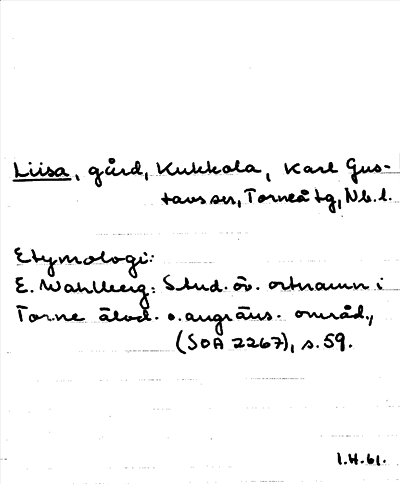 Liisa, gård, Kukkola, Karl Gus-
tavs sn, Torneå tg, Nb. l.
Etymologi:
E. Wahlberg: Stud. öv. ortnamn i
Torne älvd. o. angräns. områd.,
(SOA 2267), s. 59.
I.H.61.